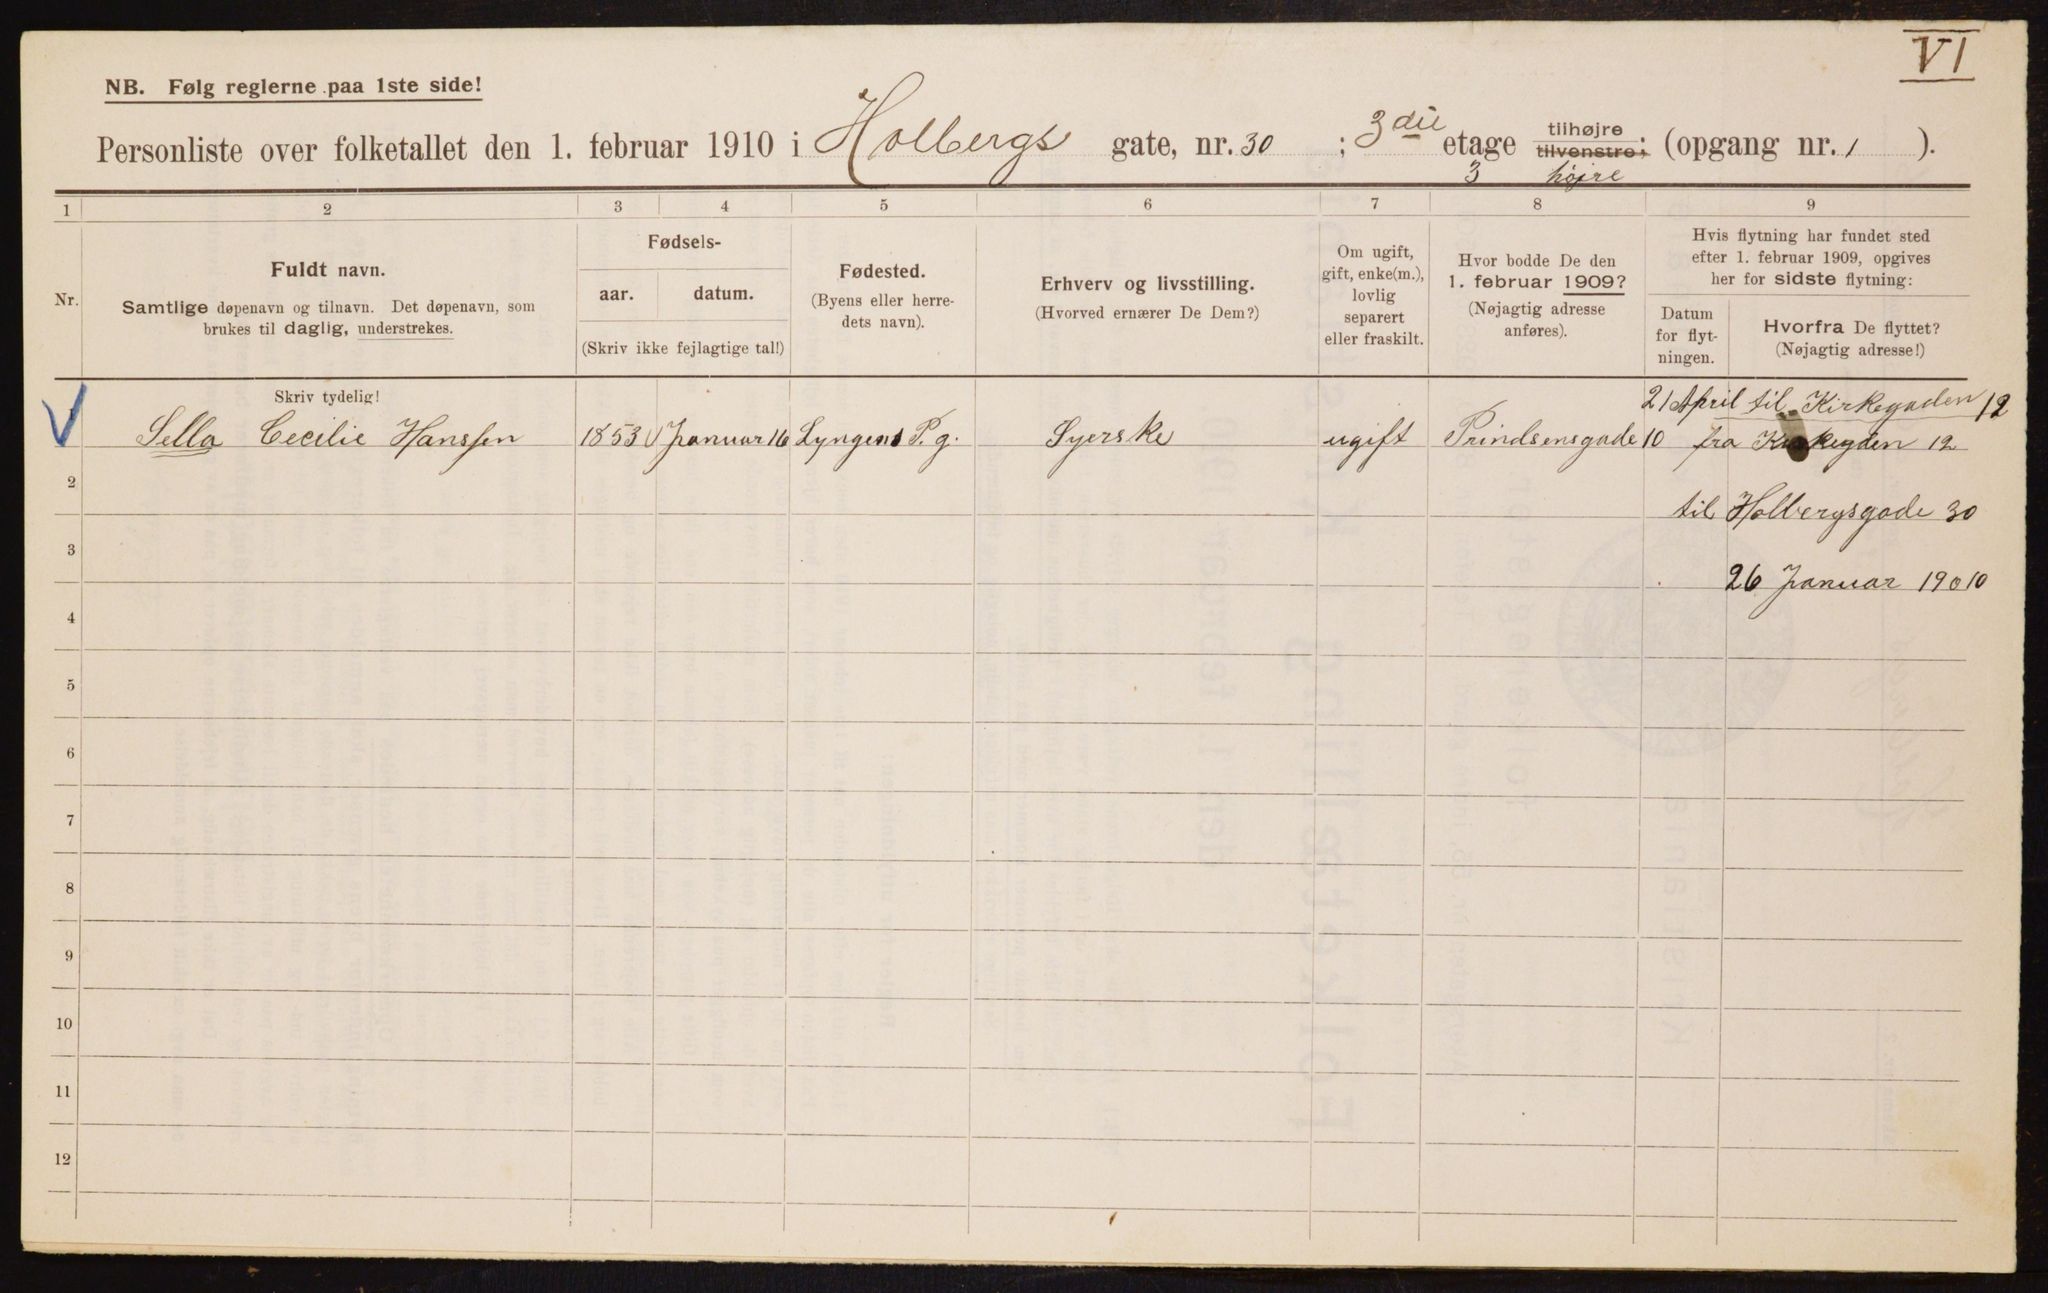 VI
NB. Følg reglerne paa 1ste side!
Personliste over folketallet den 1. februar 1910 i Holbergs gate, nr. 30 ; 3die etage tilhøjre tilvenstre; (opgang nr. 1 ).
3 højre
1 2 3 4 5 6 7 8 9
Nr.
Fuldt navn.
Samtlige døpenavn og tilnavn. Det døpenavn, som
brukes til daglig, understrekes.
Fødsels-
aar. datum.
(Skriv ikke fejlagtige tal!)
Fødested.
(Byens eller herre-
dets navn).
Erhverv og livsstilling.
(Hvorved ernærer De Dem?)
Om ugift,
gift, enke(m.),
lovlig
separert
eller fraskilt.
Hvor bodde De den
1. februar 1909?
(Nøjagtig adresse
anføres).
Hvis flytning har fundet sted
efter 1. februar 1909, opgives
her for sidste flytning:
Datum
for flyt-
ningen.
Hvorfra De flyttet?
(Nøjagtig adresse!)
Skriv tydelig!
21 April til Kirkegaden 12
Sella Cecilie Hanssen 1853 Januar 16 Lyngens P.g. Syerske ugift Prindsensgade 10 fra Kirkegden 12
2
til Holbergsgade 30
3
26 Januar 19010
4
5
6
7
8
9
10
11
12